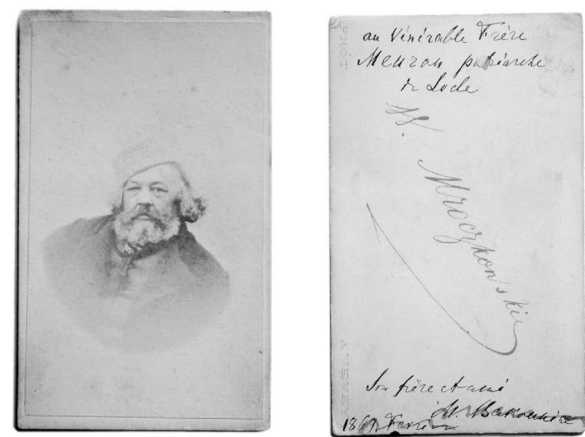 au Vénérable Frère
Meuron patriarche
du Locle
W. Mroczkowski
Son frère et ami
M. Bakounine
1869 Fevrier